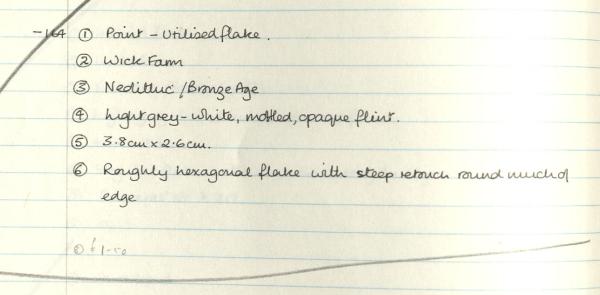 -164 ① Point - Utilised flake.
② Wick Farm
③ Neolithic / Bronze Age
④ Light grey - white, mottled, opaque flint.
⑤ 3.8cm x 2.6cm.
⑥ Roughly hexagonal flake with steep retouch round much of
edge
£1-50